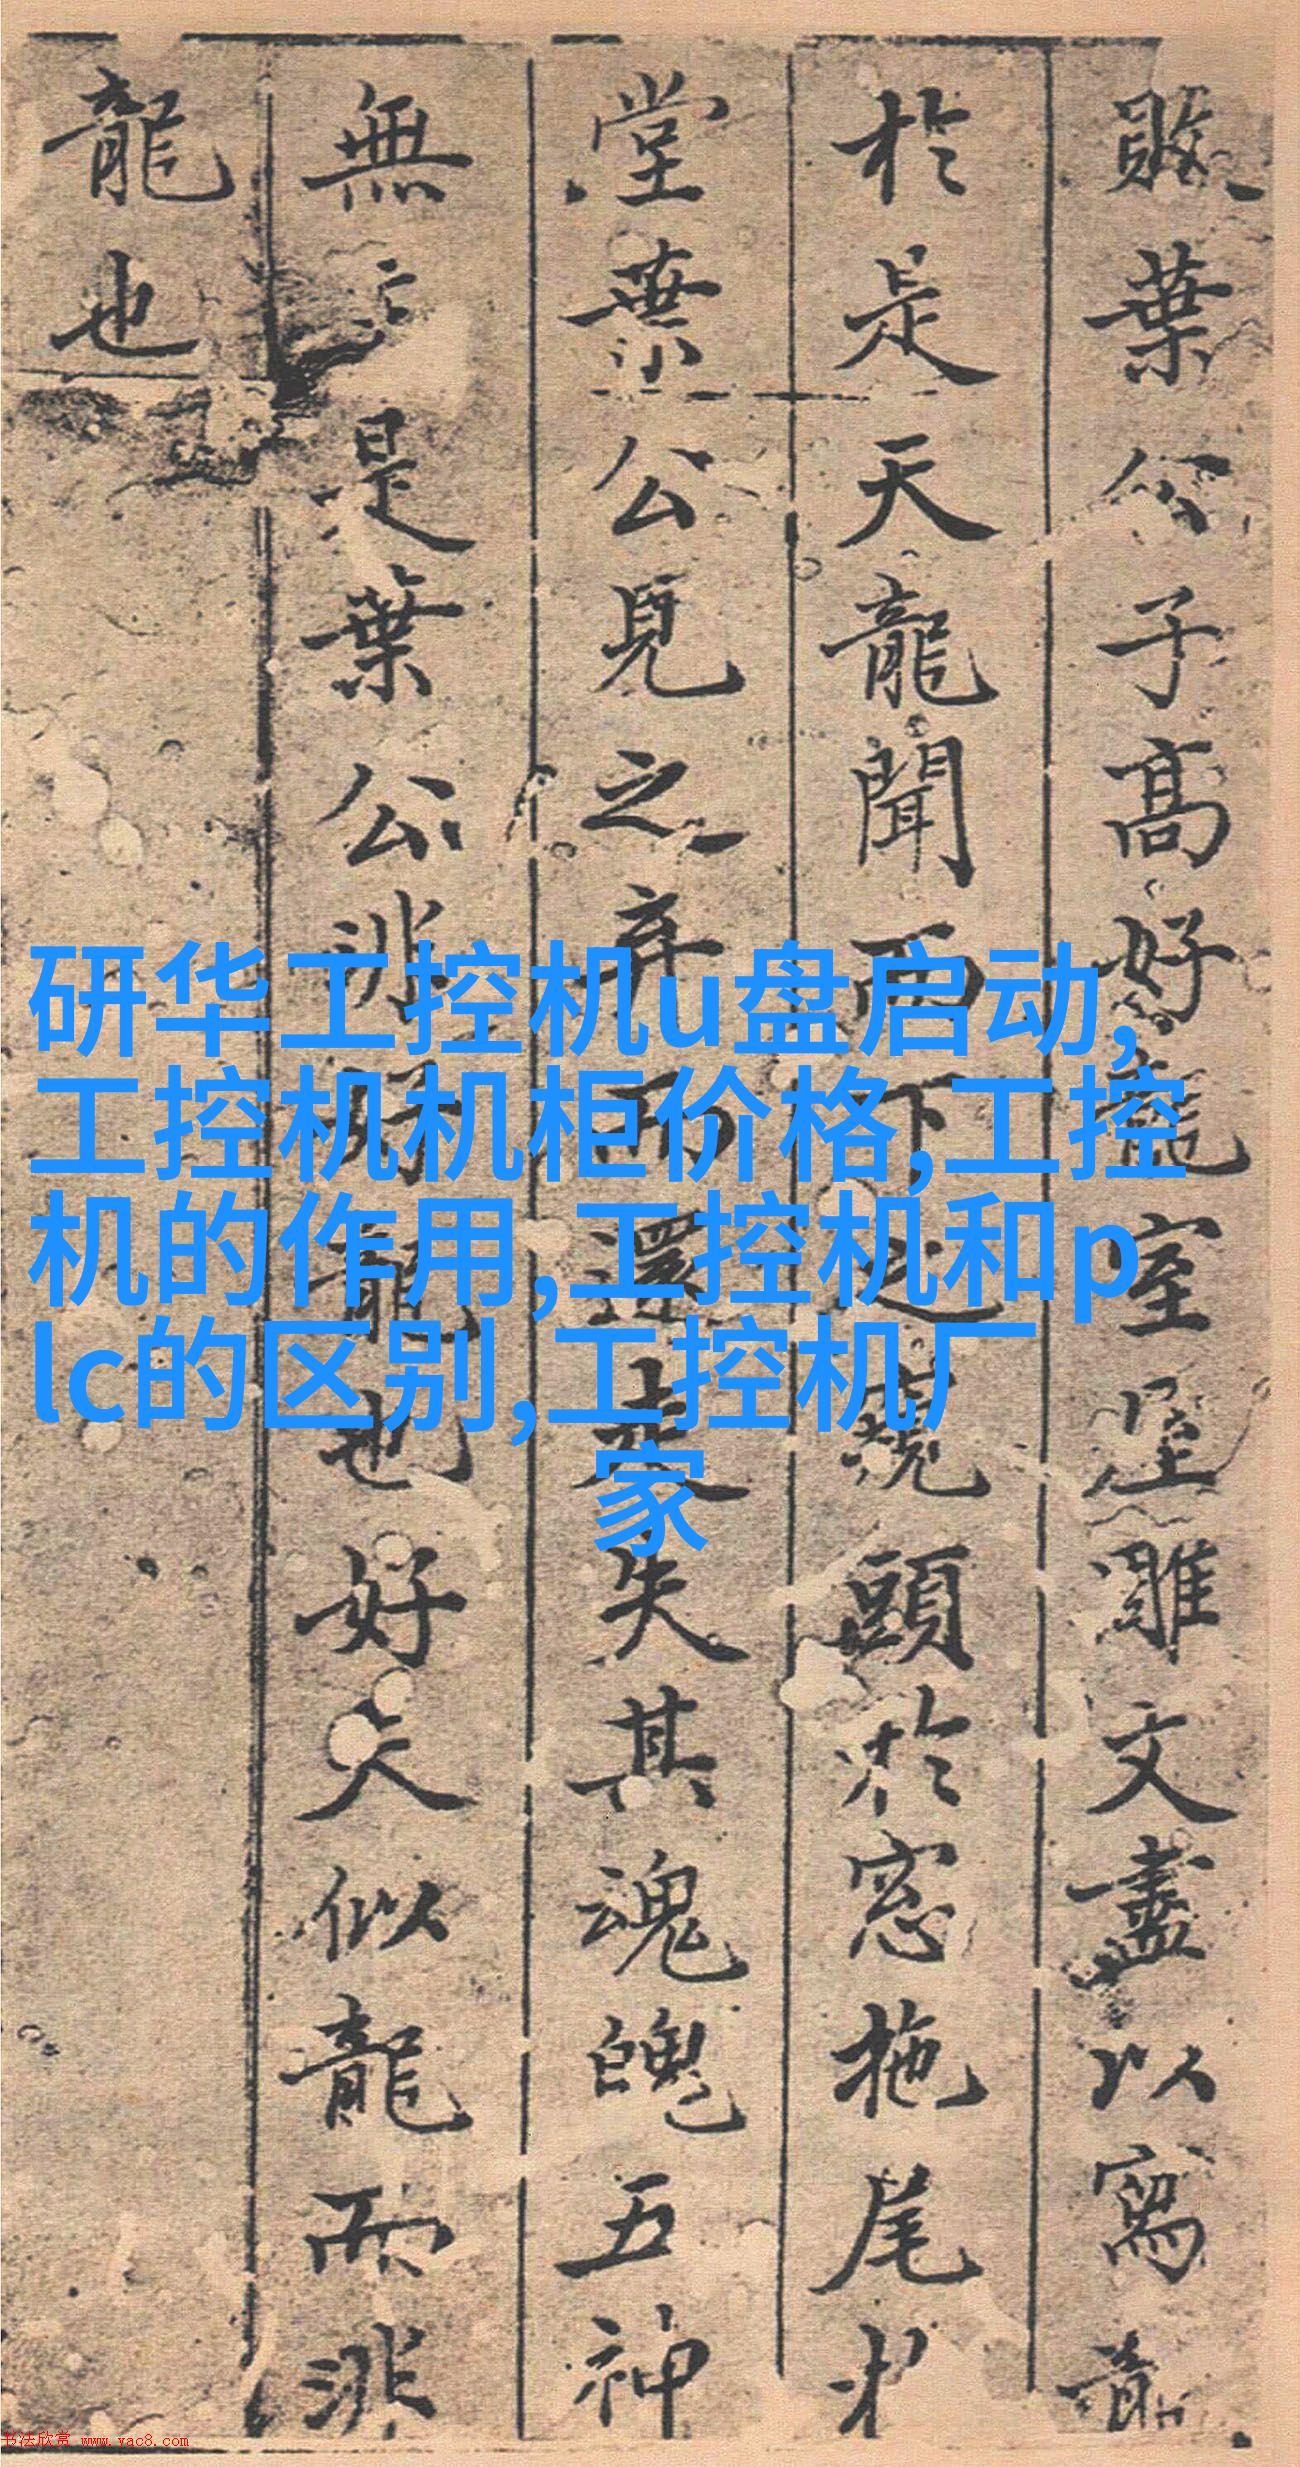 敗葉公子髙好龍室屋雕文盡以寫龍
於是天龍聞而下之窺頭於窓拖尾於
堂葉公見之棄而還走失其魂魄五神
無主是葉公非好龍也好夫似龍而非
龍也
研华工控机u盘启动,
工控机机柜价格,工控
机的作用,工控机和p
lc的区别,工控机厂
家
书法欣赏 www.yac8.com